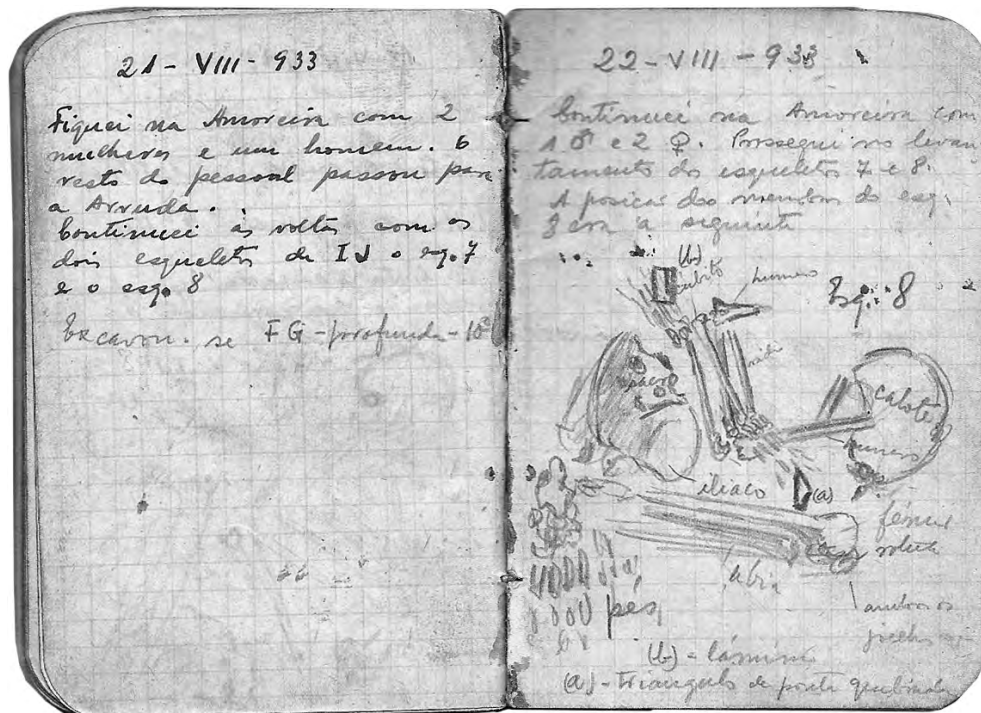 21 - VIII - 933
Fiquei na Amoreira com 2
mulheres e um homem. O
resto do pessoal passou para
a Arruda.
Continuei às voltas com os
dois esqueletos de IJ o esq. 7
e o esq. 8
Excavou-se FG - profunda - 10
22 - VIII - 933
Continuei na Amoreira com
1 ♂ e 2 ♀. Prossegui no levan
tamento dos esqueletos 7 e 8.
A posição dos membros do esq.
8 era a seguinte
(b)
cubito
humero
Esq. 8
sacro
calote
humero
iliaco
(a)
femur
tibia
pés
ambos os
(b) - lâmina
(a) - Triangulo de ponta quebrada